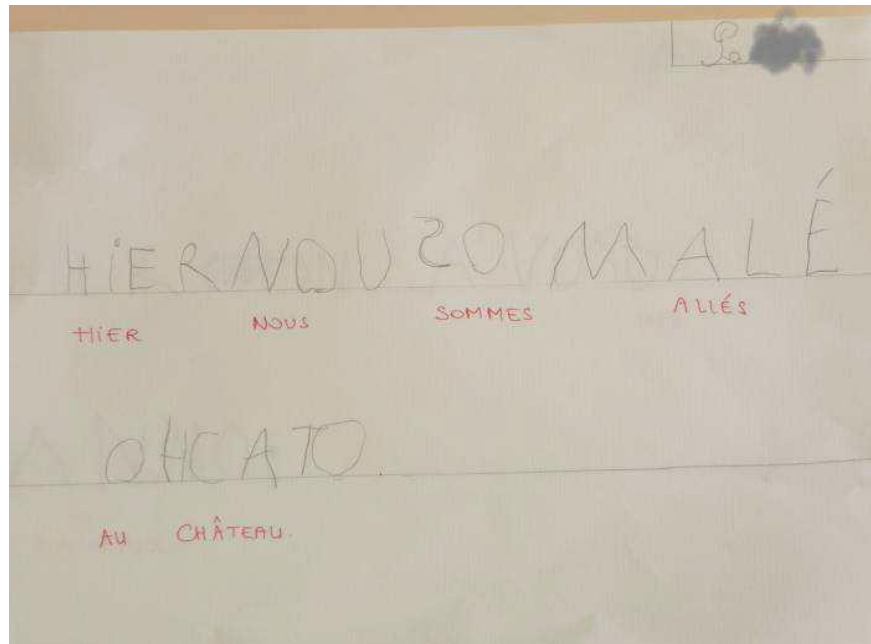 HiER NOU SO M ALÉ
HiER NOUS SOMMES ALLÉS
OHCATO.
AU CHÂTEAU.